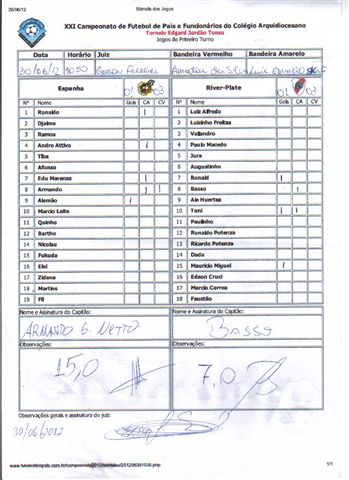 26/06/12 Súmula dos Jogos
XXI Campeonato de Futebol de Pais e Funcionários do Colégio Arquidiocesano
Torneio Edgard Jordão Tonso
Jogos do Primeiro Turno
Data Horário Juiz Bandeira Vermelho Bandeira Amarelo
30/06/12 1050 Gerson Ferreira
Espanha 01 03 River-Plate 01 03
Nº Nome Gols CA CV Nº Nome Gols CA CV
1 Ronaldo | 1 Luiz Alfredo
2 Djalma 2 Luizinho Freitas
3 Ramos 3 Vallandro
4 Andre Attivo | 4 Paulo Macedo
5 Tiba 5 Jura
6 Afonso 6 Augustinho
7 Edu Marenza | 7 Ronald |
8 Armando | | 8 Basso |
9 Alemão | 9 Ale Huertas
10 Marcio Leite 10 Toni | |
11 Quinho 11 Paulinho
12 Bartho 12 Ronaldo Potenza
13 Nicolau 13 Ricardo Potenza
14 Fukuda 14 Dada
15 Pakito 15 Mauricio Miguel | |
16 Eloi 16 Edson Cruzl
17 Zidane 17 Marcio Correa
18 Martins 18 Faustão
19 Fil
Nome e Assinatura do Capitão: Nome e Assinatura do Capitão:
ARMANDO G. NETTO BASSO
Observações: Observações:
15,0 7,0
Observações gerais e assinatura do juiz:
30/06/2012
1/1